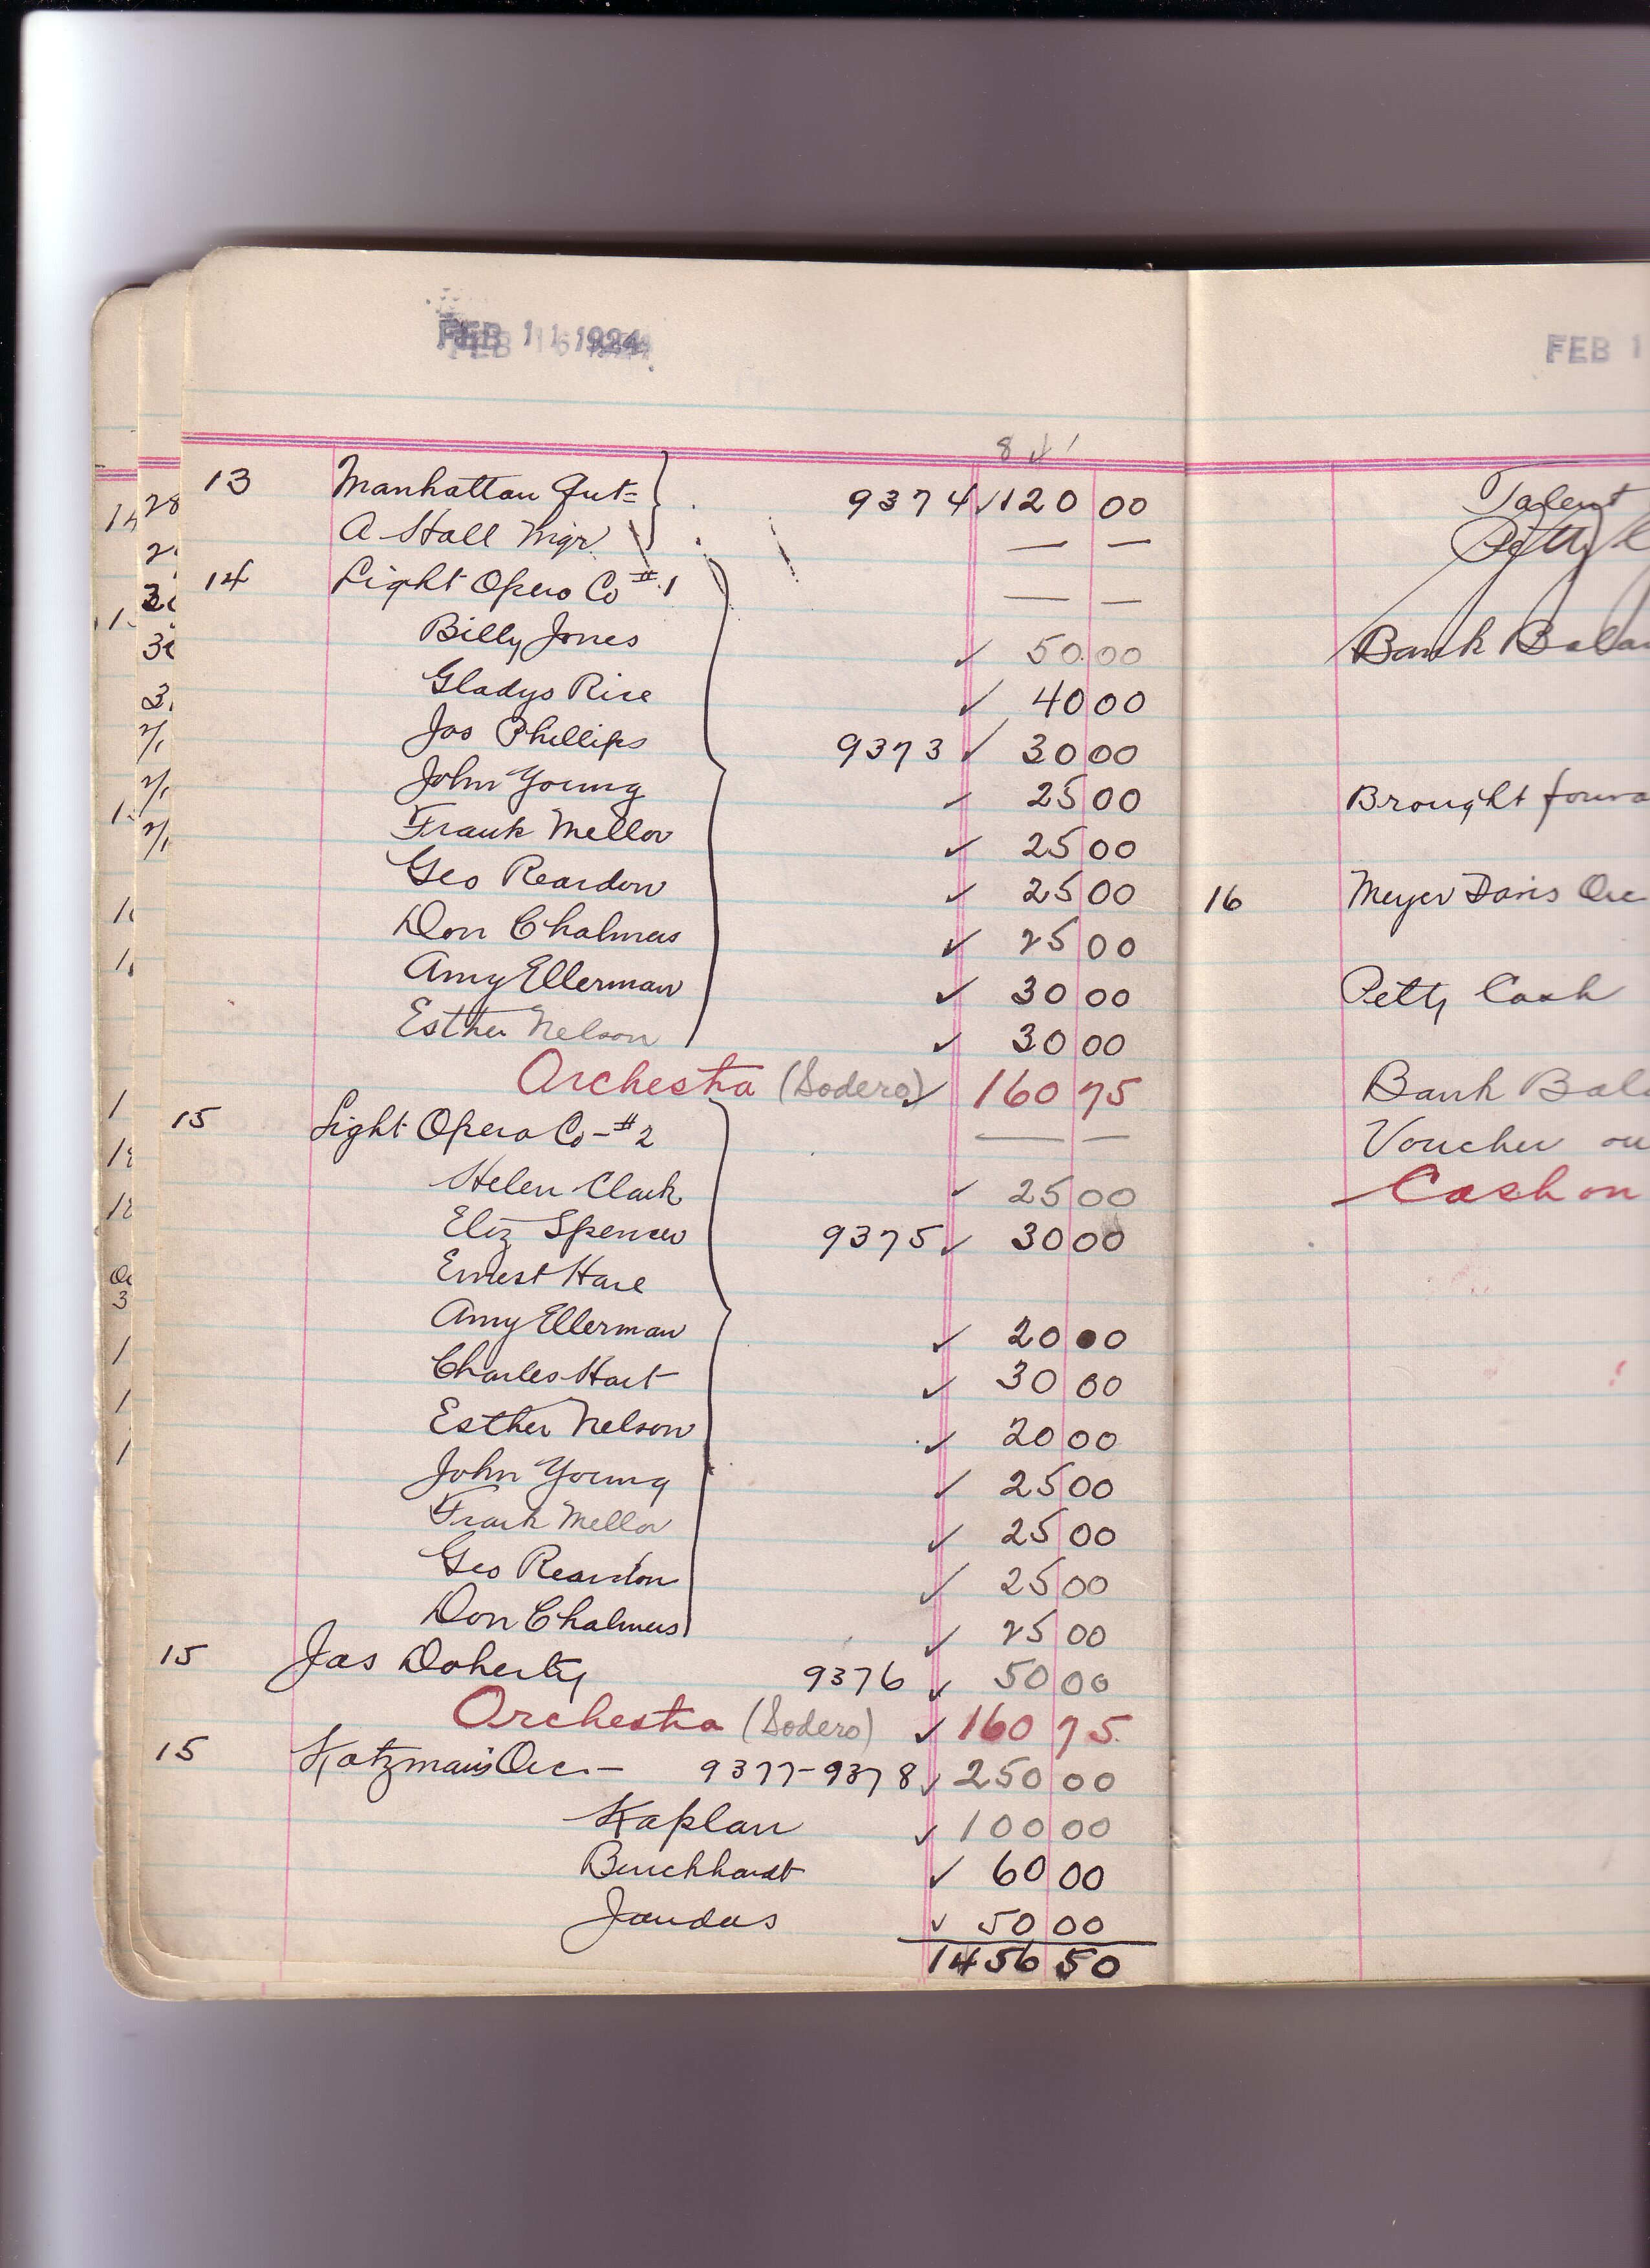 FEB 11 1924
13 Manhattan Qut= 9374 ✓ 120 00
A Hall Mgr. — —
14 Light Opera Co #1 — —
Billy Jones ✓ 50.00
Gladys Rice ✓ 40 00
Jas Phillips 9373 ✓ 30 00
John Young ✓ 25 00
Frank Mellor ✓ 25 00
Geo Reardon ✓ 25 00
Don Chalmers ✓ 25 00
Amy Ellerman ✓ 30 00
Esther Nelson ✓ 30 00
Orchestra (Sodero) ✓ 160 75
15 Light Opera Co - #2 — —
Helen Clark ✓ 25 00
Eliz Spencer 9375 ✓ 30 00
Ernest Hare
Amy Ellerman ✓ 20 00
Charles Hart ✓ 30 00
Esther Nelson ✓ 20 00
John Young ✓ 25 00
Frank Mellor ✓ 25 00
Geo Reardon ✓ 25 00
Don Chalmers ✓ 25 00
15 Jas Doherty 9376 ✓ 50 00
Orchestra (Sodero) ✓ 160 75
15 Katzman's Orc. — 9377-9378 ✓ 250 00
Kaplan ✓ 100 00
Burckhardt ✓ 60 00
Jaudas ✓ 50 00
1456 50
FEB 1
Talent
Petty
Bank Bala
Brought forwa
16 Meyer Davis Orc
Petty Cash
Bank Bala
Voucher ou
Cash on